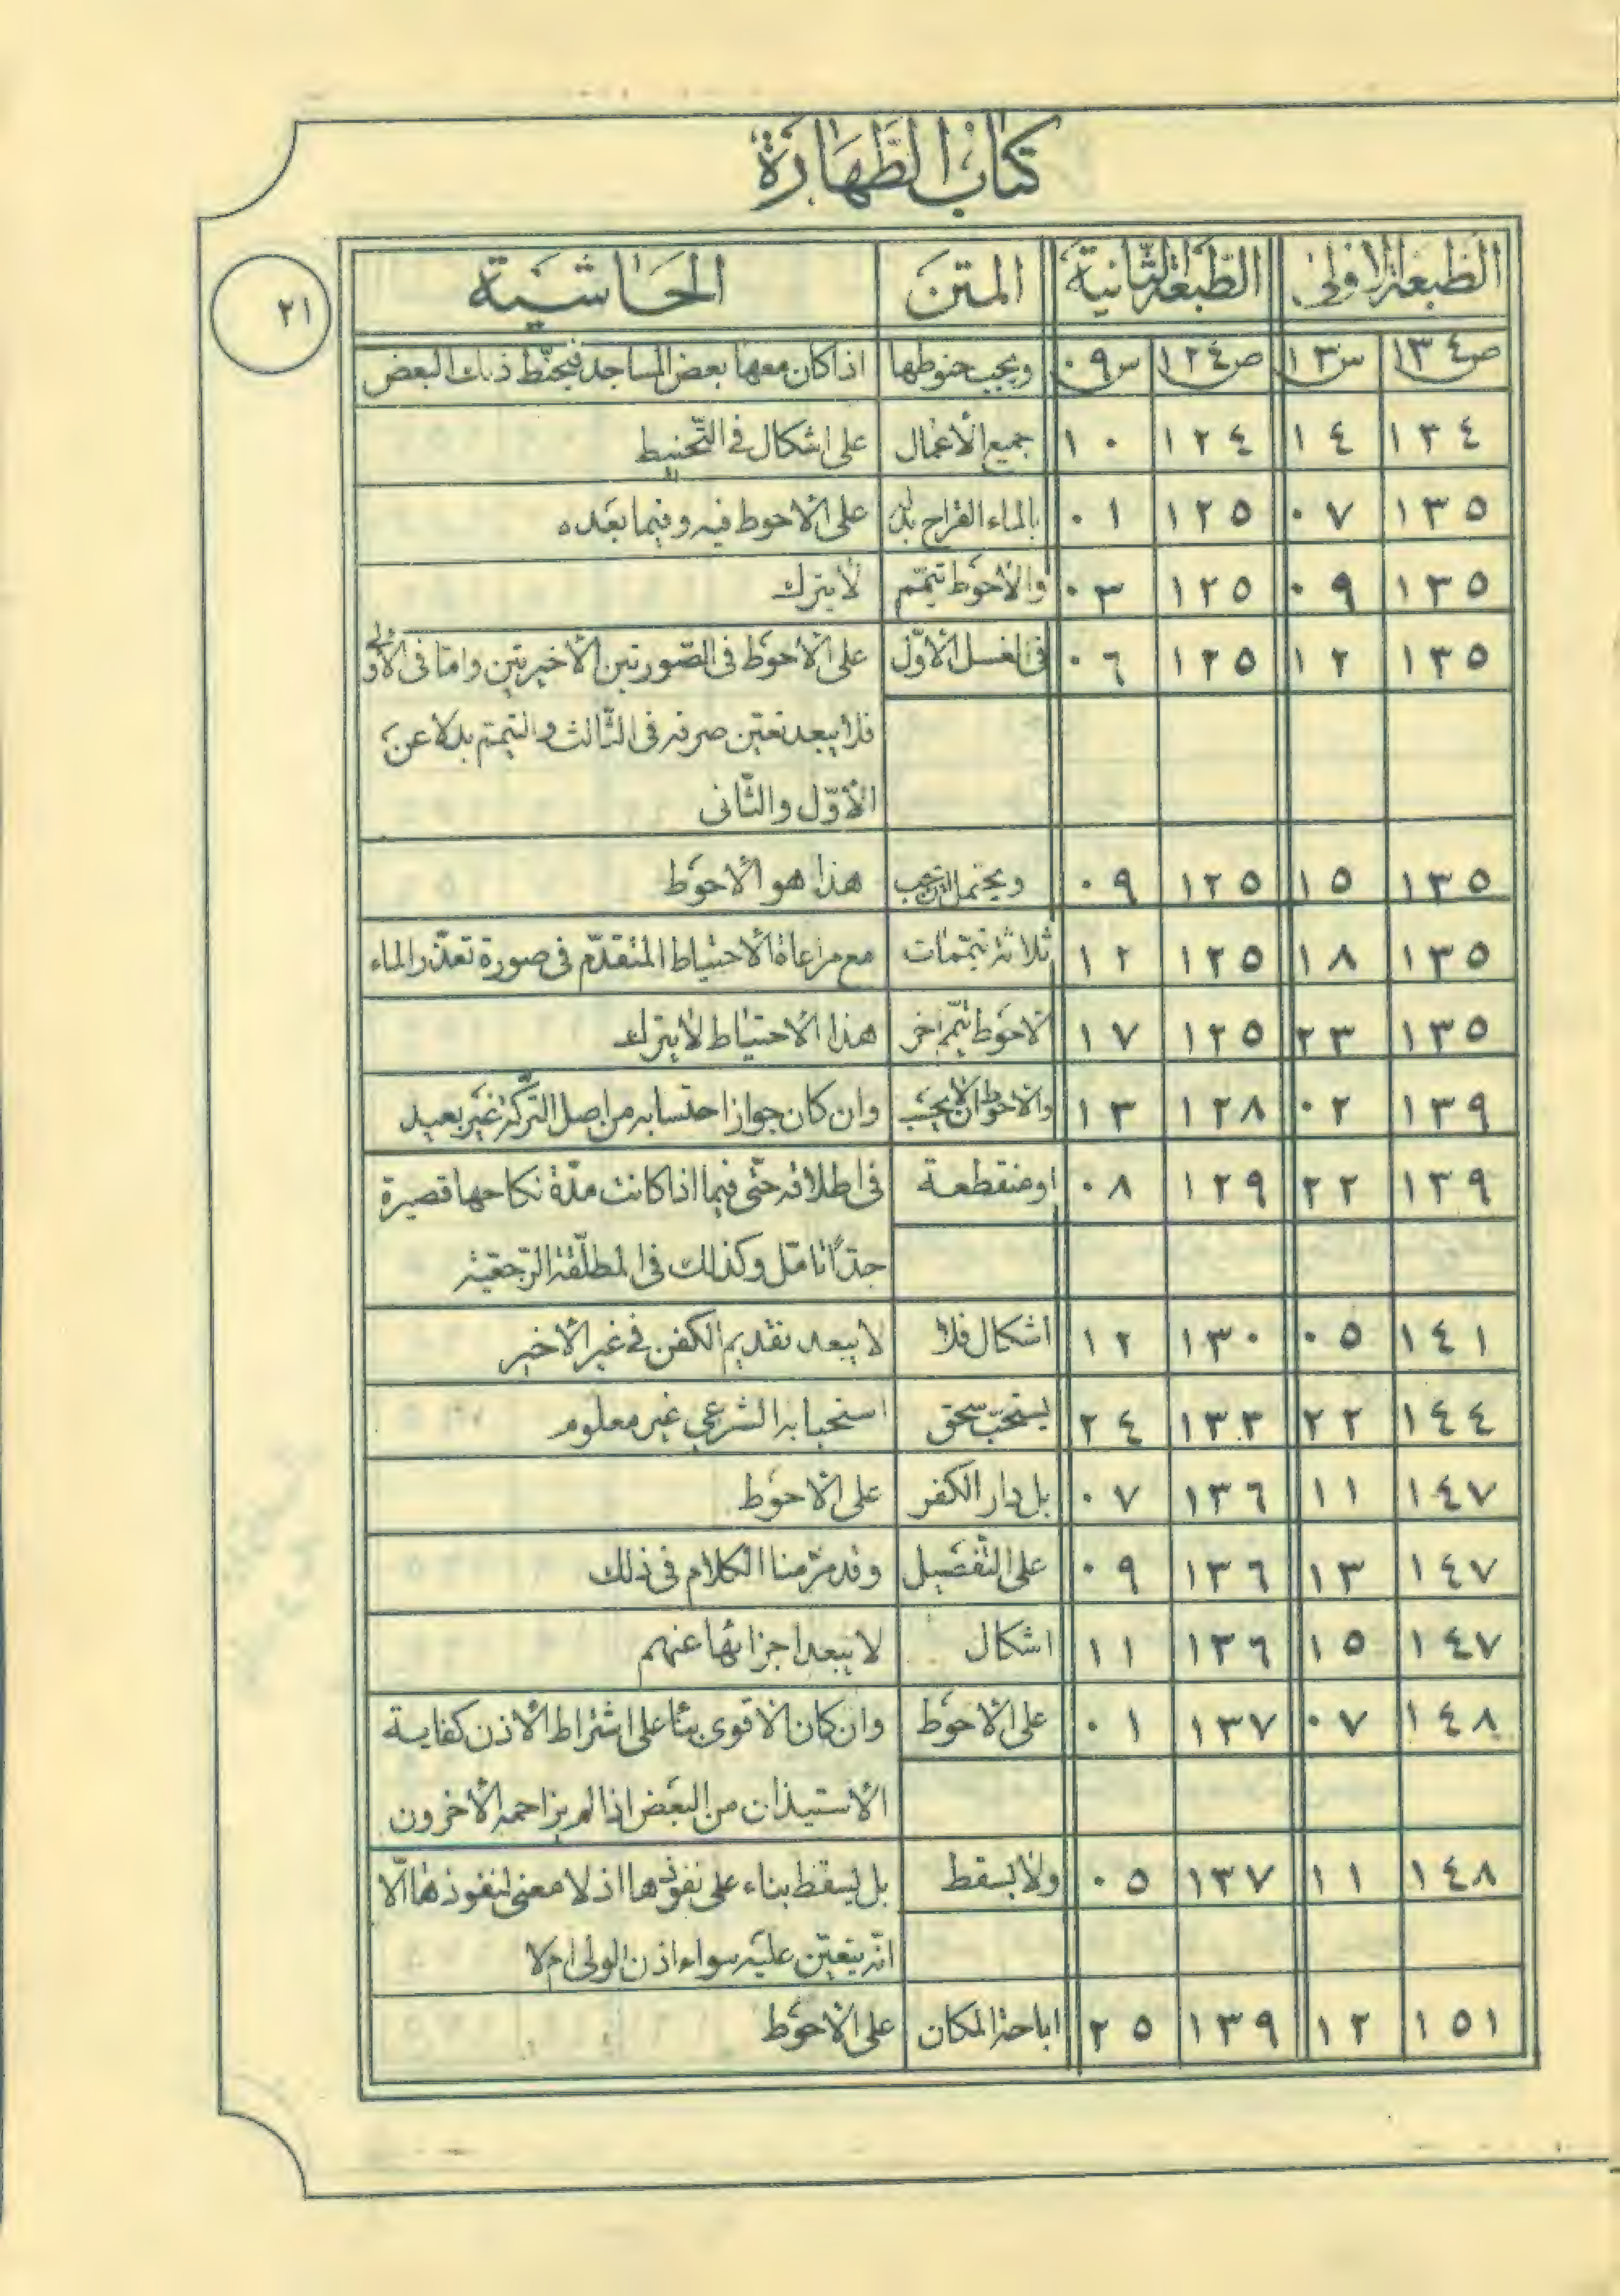 كتاب الطهارة
٢١
الطبعة الاولى الطبعة الثانية المتن الحاشية
ص١٣٤ س١٣ ص١٢٤ س٠٩ ويجب حنوطها اذا كان معها بعض المساجد فيحنّط ذلك البعض
١٣٤ ١٤ ١٢٤ ١٠ جميع الأعمال على اشكال في التّحنيط
١٣٥ ٠٧ ١٢٥ ٠١ بالماء القراح بدل على الأحوط فيه وفيما بعده
١٣٥ ٠٩ ١٢٥ ٠٣ والأحوط تيمّم لا يترك
١٣٥ ١٢ ١٢٥ ٠٦ في الغسل الأوّل على الأحوط في الصّورتين الأخيرتين وامّا في الأولى
فلا يبعد تعيّن صرفه في الثّالث والتيمّم بدلا عن
الأوّل والثّاني
١٣٥ ١٥ ١٢٥ ٠٩ ويحتمل الترتيب هذا هو الأحوط
١٣٥ ١٨ ١٢٥ ١٢ ثلاثة تيمّمات مع مراعاة الأحتياط المتقدّم في صورة تعذّر الماء
١٣٥ ٢٣ ١٢٥ ١٧ الاحوط تيمّم اخر هذا الاحتياط لا يترك
١٣٩ ٠٢ ١٢٨ ١٣ والاحوط ان لا يحسب وان كان جواز احتسابه من اصل التّركة غير بعيد
١٣٩ ٢٢ ١٢٩ ٠٨ او منقطعة في اطلاقه حتّى فيما اذا كانت مدّة نكاحها قصيرة
جدّاً تامّل وكذلك في المطلّقة الرّجعيّة
١٤١ ٠٥ ١٣٠ ١٢ اشكال فلا لا يبعد تقديم الكفن في غير الأخير
١٤٤ ٢٢ ١٣٣ ٢٤ يستحبّ سحق استحبابه الشرعي غير معلوم
١٤٧ ١١ ١٣٦ ٠٧ بل دار الكفر على الأحوط
١٤٧ ١٣ ١٣٦ ٠٩ على التفصيل وقد مرّ منا الكلام في ذلك
١٤٧ ١٥ ١٣٦ ١١ اشكال لا يبعد اجزائها عنهم
١٤٨ ٠٧ ١٣٧ ٠١ على الأحوط وان كان الأقوى بناً على اشتراط الأذن كفاية
الأستيذان من البعض اذا لم يزاحمه الأخرون
١٤٨ ١١ ١٣٧ ٠٥ ولا يسقط بل يسقط بناء على نفوذها اذ لا معنى لنفوذها الّا
انّه يتعيّن عليه سواء اذن الولى ام لا
١٥١ ١٢ ١٣٩ ٢٥ اباحة المكان على الأحوط